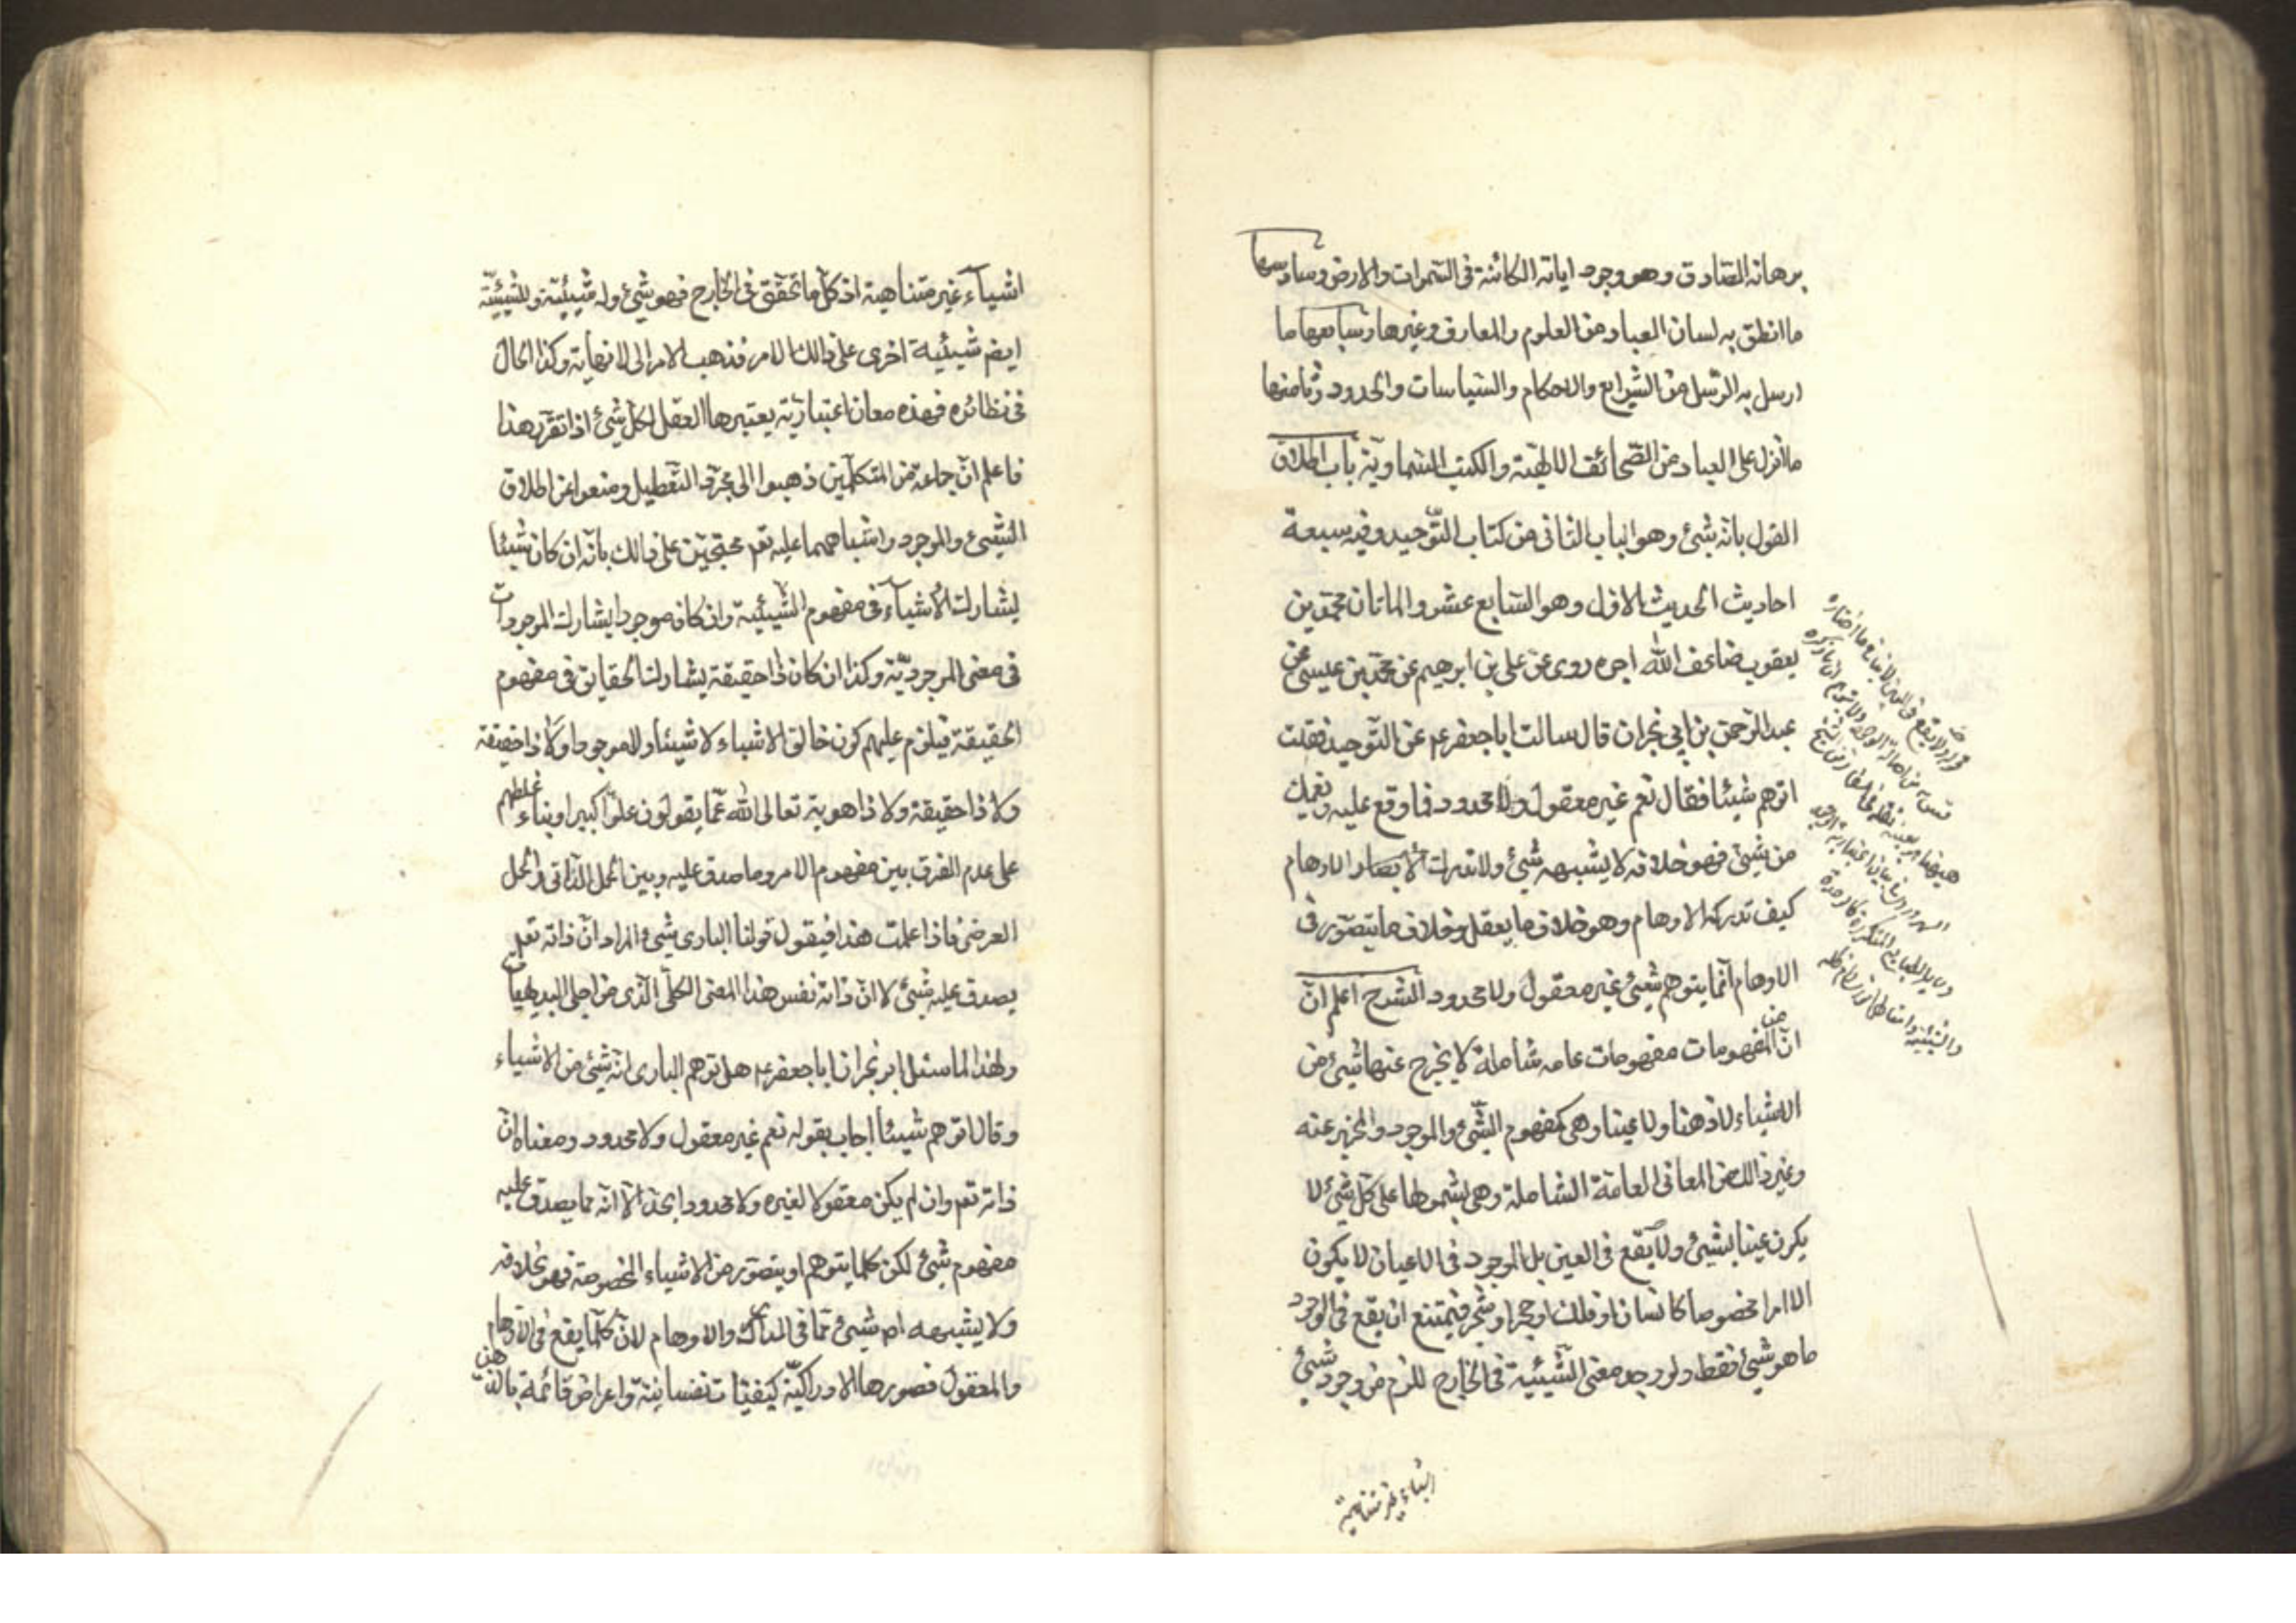 برهانه الصادق وهو وجود اياته الكائنة فى السموات والارض وسادسها
ما انطق به لسان العباد من العلوم والمعارف وغيرها وسابعها ما
ارسل به الرسل من الشرايع والاحكام والسياسات والحدود وثامنها
ما انزل على العباد من الصحائف الالهية والكتب السماوية باب اطلاق
القول بانه شئ وهو الباب الثانى من كتاب التوحيد وفيه سبعة
احاديث الحديث الاول وهو السابع عشر والماتان محمد بن
يعقوب ضاعف الله اجره روى عن على بن ابرهيم عن محمد بن عيسى عن
عبد الرحمن بن ابى نجران قال سالت ابا جعفر عم عن التوحيد فقلت
اتوهم شيئا فقال نعم غير معقول ولا محدود فما وقع عليه وهمك
من شئ فهو خلافه لا يشبهه شئ ولا تدركه الاوهام
كيف تدركه الاوهام وهو خلاف ما يعقل وخلاف ما يتصور فى
الاوهام انما يتوهم شئ غير معقول ولا محدود الشرح اعلم ان
ان من المفهومات مفهومات عامه شاملة لا يخرج عنها شئ من
الاشياء لا ذهنا ولا عينا وهى كمفهوم الشئ والموجود والمخبر عنه
وغير ذالك من المعانى العامة الشاملة وهى بشمولها على كل شئ لا
يكون عينا لشئ ولا يقع فى العين بل الموجود فى الاعيان لا يكون
الا امرا مخصوصا كانسان او فلك او حجر او شجر فيمتنع ان يقع فى الوجود
ما هو شئ فقط ولو وجد معنى الشيئية فى الخارج للزم من وجود شئ
اشياء غير متناهية
اشياء غير متناهية اذ كل ما تحقق فى الخارج فهو شئ وله شيئية وللشيئية
ايضم شيئية اخرى على ذالك الامر فذهب الامر الى لا نهاية وكذا الحال
فى نظائره فهذه معان اعتبارية يعتبرها العقل لكل شئ اذا تقرر هذا
فاعلم ان جاعة من المتكلمين ذهبوا الى مجرد التعطيل ومنعوا عن اطلاق
الشئ والموجود واشباههما عليه تعم محتجين على ذالك بانه ان كان شيئا
يشارك الاشياء فى مفهوم الشيئية وان كان موجودا يشارك الموجودات
فى معنى الموجودية وكذا ان كان ذا حقيقة يشارك الحقايق فى مفهوم
الحقيقة فيلزم عليهم كون خالق الاشياء لا شيئا ولا موجودا ولا ذا حقيقة
ولا ذا حقيقة ولا ذا هوية تعالى الله عما يقولون علوا كبيرا وبناء غلطهم
على عدم الفرق بين مفهوم الامر وما صدق عليه وبين الحمل الذاتى والحمل
العرضى فاذا علمت هذا فيقول قولنا البارى شئ المراد ان ذاته تعم
يصدق عليه شئ لا ان ذاته نفس هذا المعنى الكلى الذى من اجلى البديهيات
ولهذا لما سئل ابن نجران ابا جعفر عم هل توهم البارى انه شئ من الاشياء
وقال اتوهم شيئا اجاب بقوله نعم غير معقول ولا محدود ومعناه ان
ذاته تعم وان لم يكن معقولا لغيره ولا محدودا بحد الا انه مما يصدق عليه
مفهوم شئ لكن كلما يتوهم او يتصور من الاشياء المخصوصة فهو بخلافه
ولا يشبهه شئ مما فى المدارك والاوهام لان كلما يقع فى الاوهام
والمعقول فصورها الادراكية كيفيات نفسانية واعراض قائمة بالذهن